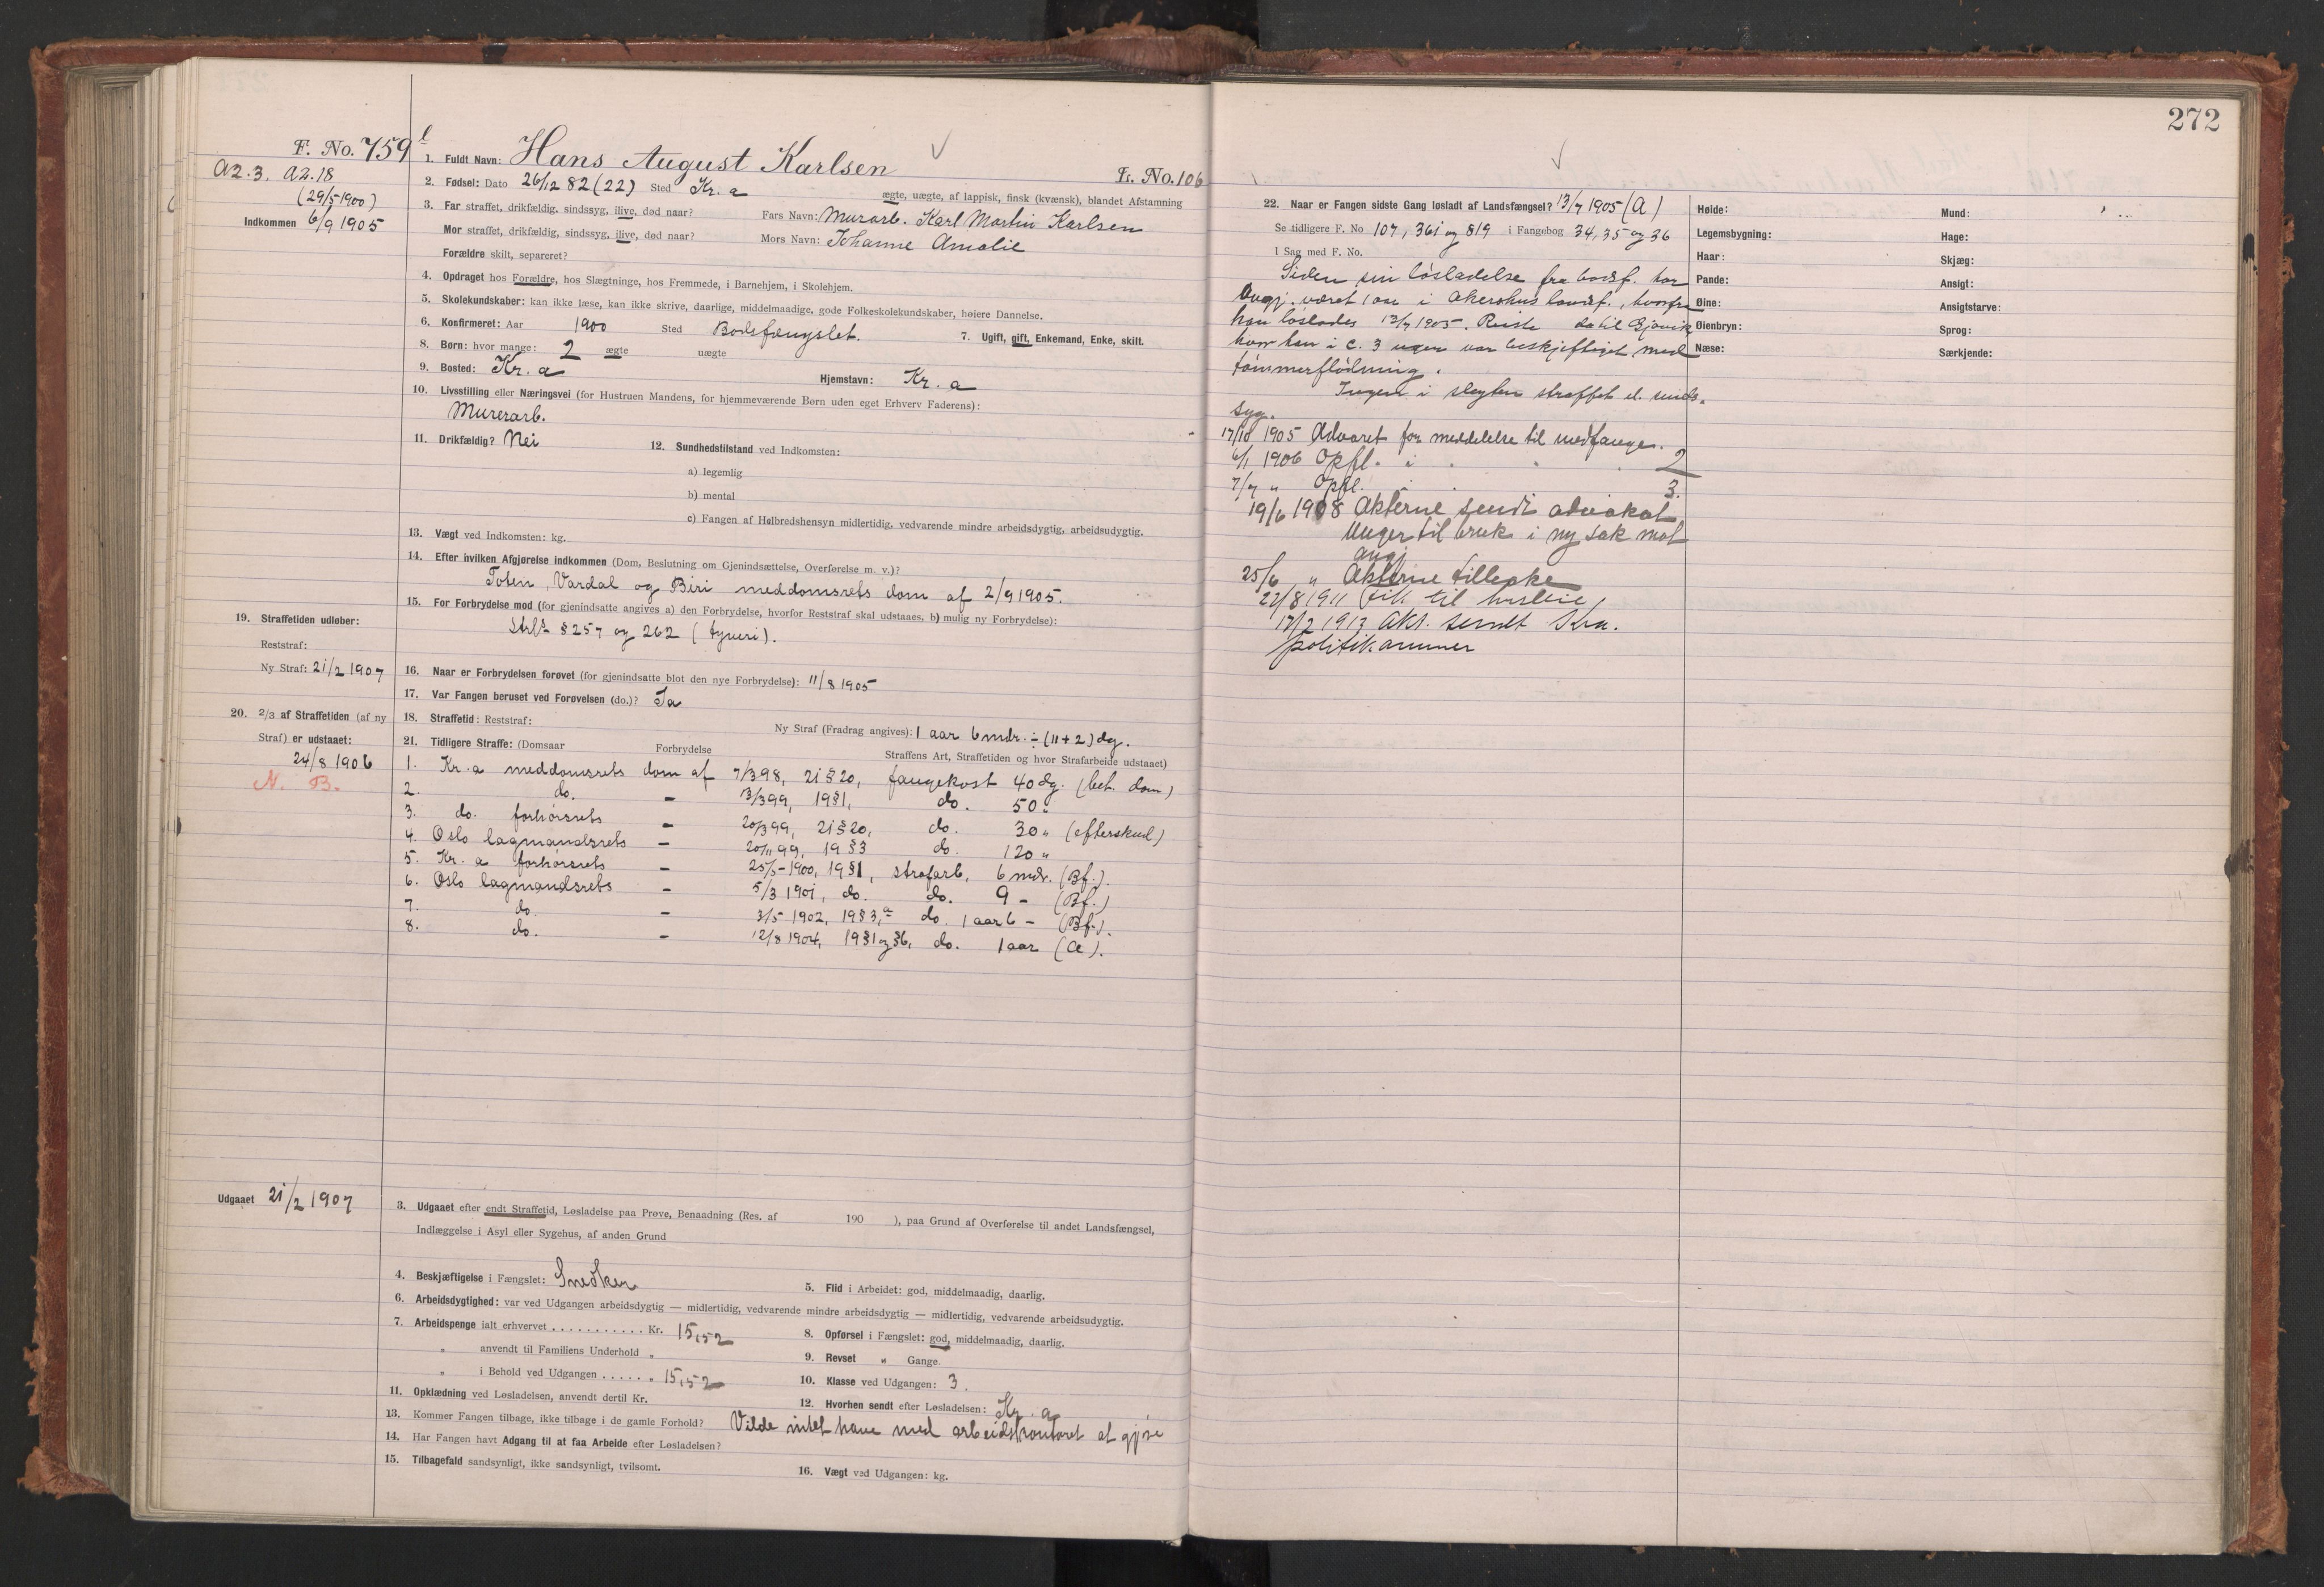 272
F. No. 759 b
A2.3. A2.18
(29/5 1900)
Indkommen 6/9 1905
1. Fuldt Navn: Hans August Karlsen
Fr. No. 106
2. Fødsel: Dato 26/12 82 (22) Sted Kr.a
ægte, uægte, af lappisk, finsk (kvænsk), blandet Afstamning
3. Far straffet, drikfældig, sindssyg, ilive, død naar? Fars Navn: Murarb. Karl Martin Karlsen
Mor straffet, drikfældig, sindssyg, ilive, død naar? Mors Navn: Johanne Amalie
Forældre skilt, separeret?
4. Opdraget hos Forældre, hos Slægtninge, hos Fremmede, i Barnehjem, i Skolehjem.
5. Skolekundskaber: kan ikke læse, kan ikke skrive, daarlige, middelmaadige, gode Folkeskolekundskaber, høiere Dannelse.
6. Konfirmeret: Aar 1900 Sted Bodsfængslet.
7. Ugift, gift, Enkemand, Enke, skilt.
8. Børn: hvor mange: 2 ægte uægte
9. Bosted: Kr.a Hjemstavn: Kr.a
10. Livsstilling eller Næringsvei (for Hustruen Mandens, for hjemmeværende Børn uden eget Erhverv Faderens):
Murerarb.
11. Drikfældig? Nei
12. Sundhedstilstand ved Indkomsten:
a) legemlig
b) mental
c) Fangen af Helbredshensyn midlertidig, vedvarende mindre arbeidsdygtig, arbeidsudygtig.
13. Vægt ved Indkomsten: kg.
14. Efter hvilken Afgjørelse indkommen (Dom, Beslutning om Gjenindsættelse, Overførelse m. v.)?
Toten, Vardal og Biri meddomsrets dom af 2/9 1905.
15. For Forbrydelse mod (for gjenindsatte angives a) den Forbrydelse, hvorfor Reststraf skal udstaaes, b) mulig ny Forbrydelse):
Strl's § 257 og 262 (tyveri).
19. Straffetiden udløber:
Reststraf:
Ny Straf: 21/2 1907
16. Naar er Forbrydelsen forøvet (for gjenindsatte blot den nye Forbrydelse): 11/8 1905
17. Var Fangen beruset ved Forøvelsen (do.)? Ja
20. 2/3 af Straffetiden (af ny
Straf) er udstaaet:
24/8 1906
N. B.
18. Straffetid: Reststraf: Ny Straf (Fradrag angives): 1 aar 6 mdr. ÷ (11+2) dg.
21. Tidligere Straffe: (Domsaar Forbrydelse Straffens Art, Straffetiden og hvor Strafarbeide udstaaet)
1. Kr.a meddomsrets dom af 7/3 98, 21 § 20, fangekost 40 dg. (bet. dom)
2. do. - 13/3 99, 19 § 1, do. 50 "
3. do. forhørsrets - 20/3 99, 21 § 20, do. 30 " (efterskud)
4. Oslo lagmandsrets - 20/11 99, 19 § 3 do. 120 "
5. Kr.a forhørsrets - 25/5 - 1900, 19 § 1, strafarb. 6 mdr. (Bf.).
6. Oslo lagmandsrets - 5/3 1901, do. do. 9 - (Bf.)
7. do. - 3/5 1902, 19 § 3, a do. 1 aar 6 - (Bf.).
8. do. - 12/8 1904, 19 § 1 og § 6, do. 1 aar (A).
Udgaaet 21/2 1907
3. Udgaaet efter endt Straffetid, Løsladelse paa Prøve, Benaadning (Res. af 190 ), paa Grund af Overførelse til andet Landsfængsel,
Indlæggelse i Asyl eller Sygehus, af anden Grund
4. Beskjæftigelse i Fængslet: Snedker
5. Flid i Arbeidet: god, middelmaadig, daarlig.
6. Arbeidsdygtighed: var ved Udgangen arbeidsdygtig — midlertidig, vedvarende mindre arbeidsdygtig — midlertidig, vedvarende arbeidsudygtig.
7. Arbeidspenge ialt erhvervet . . . . . . . . . . . Kr. 15,52
8. Opførsel i Fængslet: god, middelmaadig, daarlig.
" anvendt til Familiens Underhold "
9. Revset " Gange.
" i Behold ved Udgangen . . . . . . " 15,52
10. Klasse ved Udgangen: 3.
11. Opklædning ved Løsladelsen, anvendt dertil Kr.
12. Hvorhen sendt efter Løsladelsen: Kr.a
13. Kommer Fangen tilbage, ikke tilbage i de gamle Forhold? Vilde intet have med arbeidskontoret at gjøre
14. Har Fangen havt Adgang til at faa Arbeide efter Løsladelsen?
15. Tilbagefald sandsynligt, ikke sandsynligt, tvilsomt.
16. Vægt ved Udgangen: kg.
22. Naar er Fangen sidste Gang løsladt af Landsfængsel? 13/7 1905 (A)
Se tidligere F. No 107, 361 og 819 i Fangebog 34, 35 og 36
I Sag med F. No.
Siden sin løsladelse fra bodsf. har
Angj. været 1 aar i Akershus landsf., hvorfra
han løslades 13/7 1905. Reiste da til Gjøvik
hvor han i c. 3 uger var beskjeftiget med
tømmerflødning.
Ingen i slegten straffet el. sinds-
syg.
17/10 1905 Advaret for meddelelse til medfange.
6/1 1906 Opfl. i 2
7/7 " Opfl. i 3.
19/6 1908 Akterne sendt advokat
Unger til bruk i ny sak mot
angj.
25/6 " Akterne tilbake
22/8 1911 Fik til husleie
17/2 1913 Akt. sendt Kra.
politikammer
Høide:
Legemsbygning:
Haar:
Pande:
Øine:
Øienbryn:
Næse:
Mund:
Hage:
Skjæg:
Ansigt:
Ansigtstarve:
Sprog:
Særkjende: